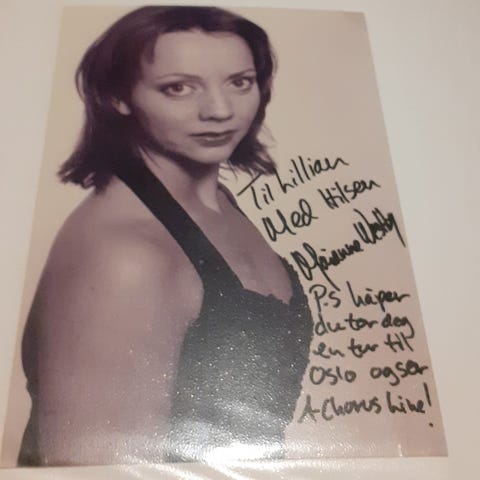 Til Lillian
Med Hilsen
Marianne
P.S håper
du tar deg
en tur til
Oslo og ser
A Chorus Line!